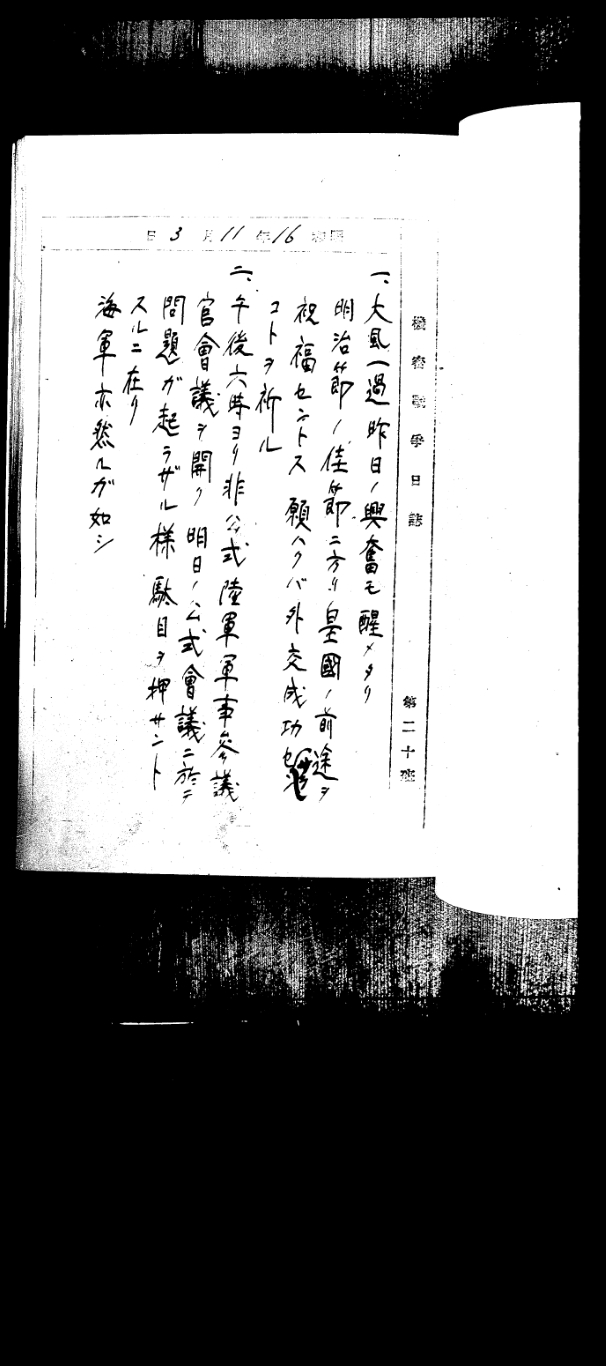 機密戰爭日誌
第二十班
昭和16年11月3日
一、大風一過昨日ノ興奮モ醒メタリ
明治節ノ佳節ニ方リ皇國ノ前途ヲ
祝福セントス 願ハクバ外交成功セン
コトヲ祈ル
二、午後六時ヨリ非公式陸軍軍事參議
官會議ヲ開ク 明日ノ公式會議ニ於テ
問題ガ起ラザル様駄目ヲ押サント
スルニ在リ
海軍亦然ルガ如シ